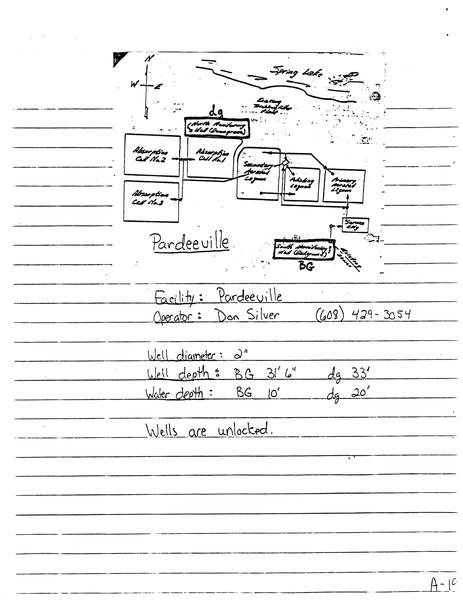 N
W E
Spring Lake
dg
North Monitoring
Well (Downgrad)
Absorption
Cell No.2
Absorption
Cell No.1
Secondary
Aerated
Lagoon
Polishing
Lagoon
Primary
Aerated
Lagoon
Absorption
Cell No.3
Service
Bldg
South Monitoring
Well
BG
Pardeeville
Facility: Pardeeville
Operator: Don Silver (608) 429-3054
Well diameter: 2"
Well depth: BG 31' 6" dg 33'
Water depth: BG 10' dg 20'
Wells are unlocked.